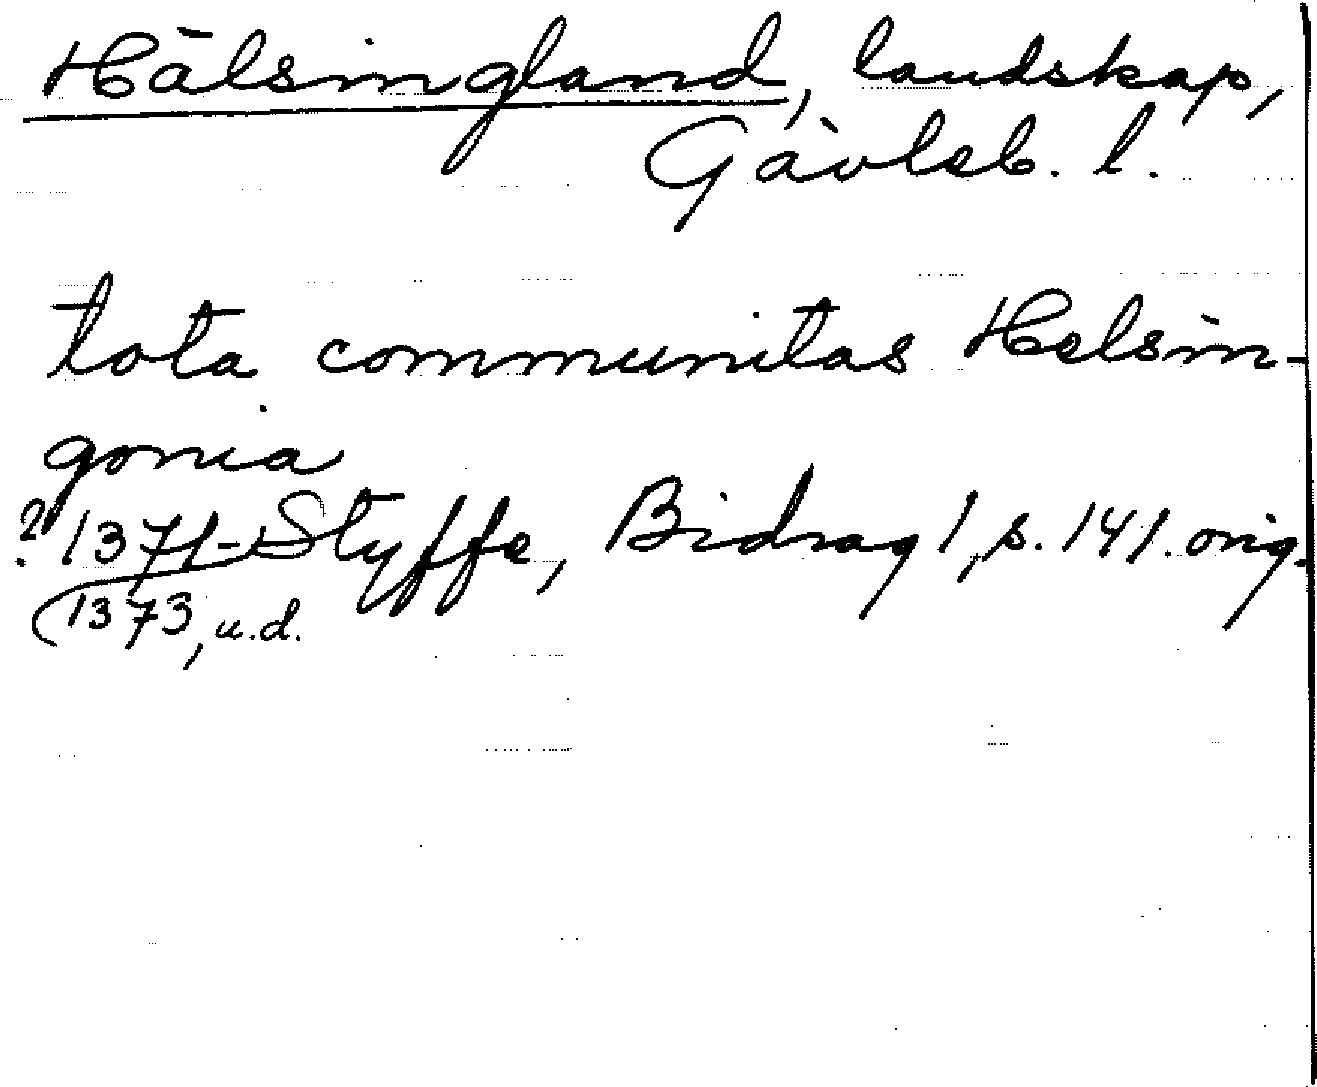 Hälsingland, landskap,
Gävleb. l.
tota communitas Helsin-
gonia
? 1371- Styffe, Bidrag 1, s. 141. orig.
(1373, u.d.